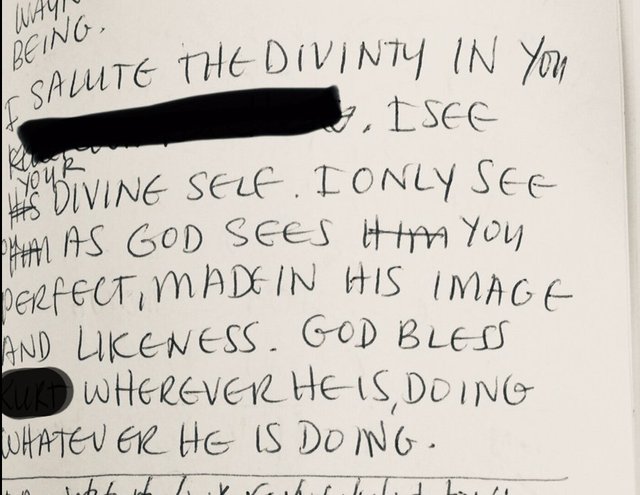 BEING.
I SALUTE THE DIVINTY IN YOU
. I SEE
YOUR
HIS DIVINE SELF. I ONLY SEE
HIM AS GOD SEES HIM YOU
PERFECT, MADE IN HIS IMAGE
AND LIKENESS. GOD BLESS
WHEREVER HE IS, DOING
WHATEVER HE IS DOING.